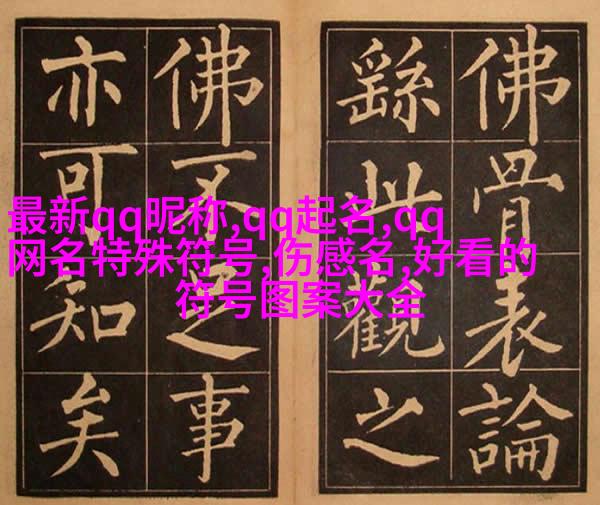 佛骨表論
繇此觀之
佛不足事
亦可知矣
最新qq昵称,qq起名,qq
网名特殊符号,伤感名,好看的
符号图案大全